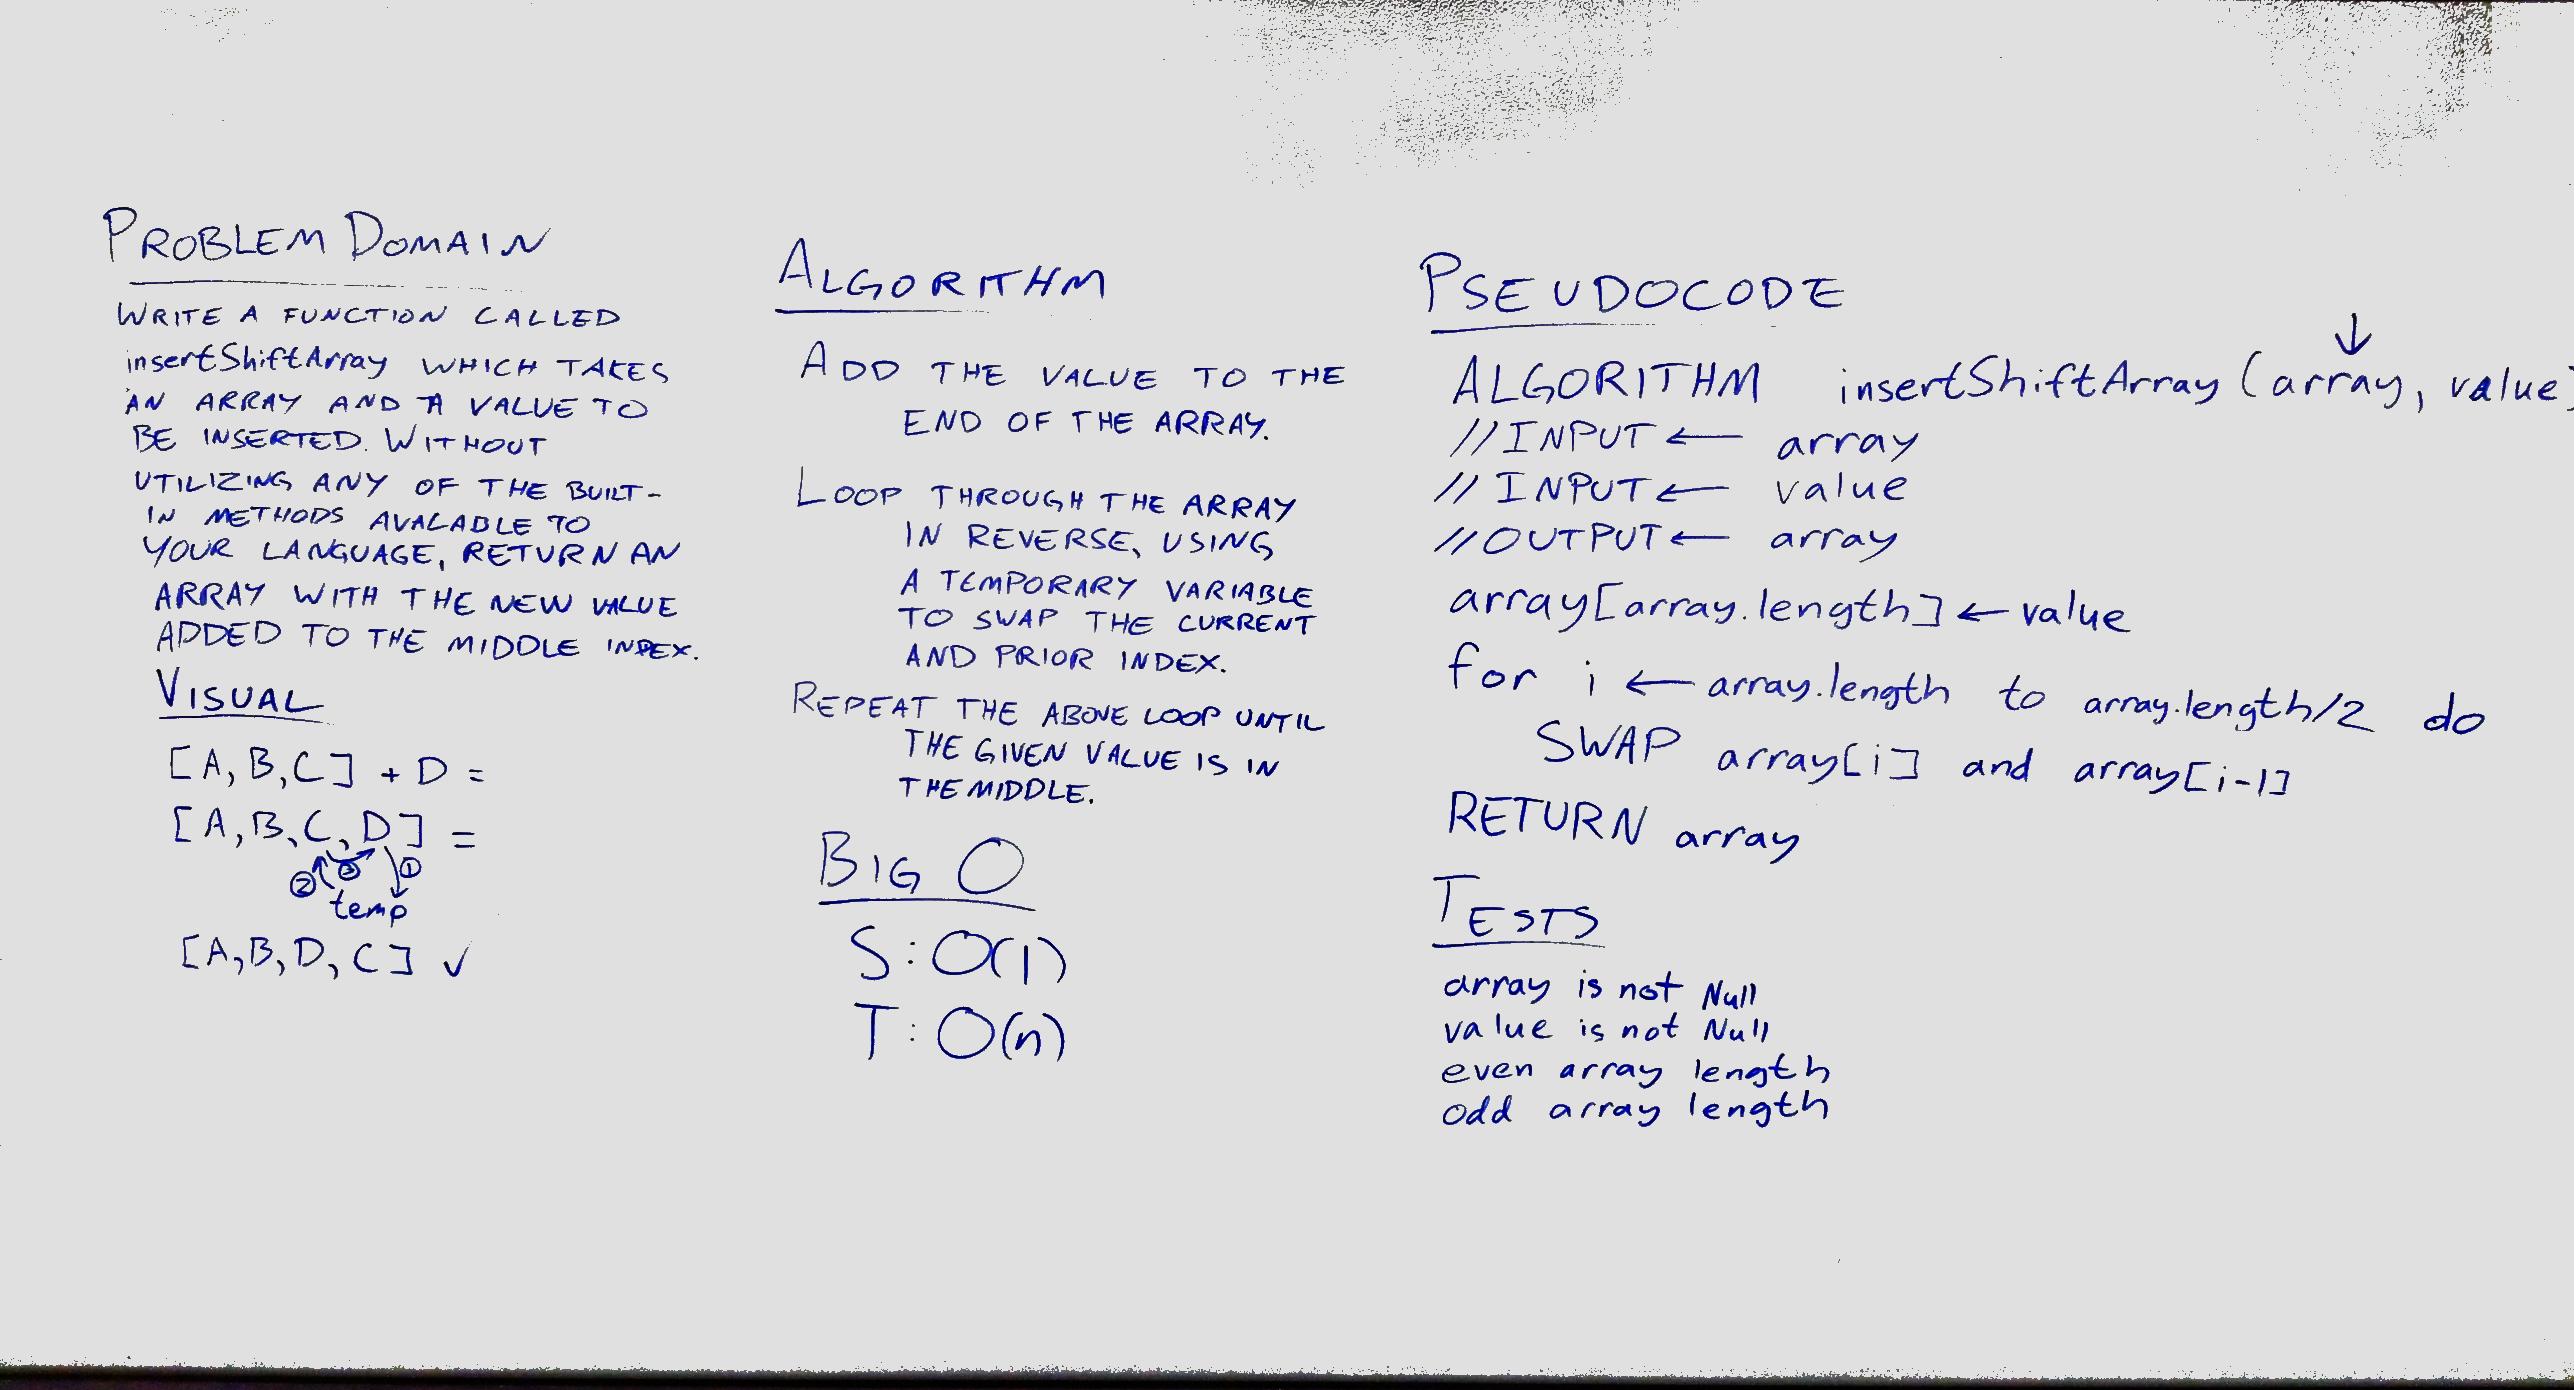 PROBLEM DOMAIN
WRITE A FUNCTION CALLED
insertShiftArray WHICH TAKES
AN ARRAY AND A VALUE TO
BE INSERTED. WITHOUT
UTILIZING ANY OF THE BUILT-
IN METHODS AVALABLE TO
YOUR LANGUAGE, RETURN AN
ARRAY WITH THE NEW VALUE
ADDED TO THE MIDDLE INDEX.
VISUAL
[A, B, C] + D =
[A, B, C, D] =
② ③ ①
temp
[A, B, D, C] ✓
ALGORITHM
ADD THE VALUE TO THE
END OF THE ARRAY.
LOOP THROUGH THE ARRAY
IN REVERSE, USING
A TEMPORARY VARIABLE
TO SWAP THE CURRENT
AND PRIOR INDEX.
REPEAT THE ABOVE LOOP UNTIL
THE GIVEN VALUE IS IN
THE MIDDLE.
BIG O
S: O(1)
T: O(n)
PSEUDOCODE
↓
ALGORITHM insertShiftArray (array, value)
//INPUT ← array
//INPUT ← value
//OUTPUT ← array
array[array.length] ← value
for i ← array.length to array.length/2 do
SWAP array[i] and array[i-1]
RETURN array
TESTS
array is not Null
value is not Null
even array length
odd array length